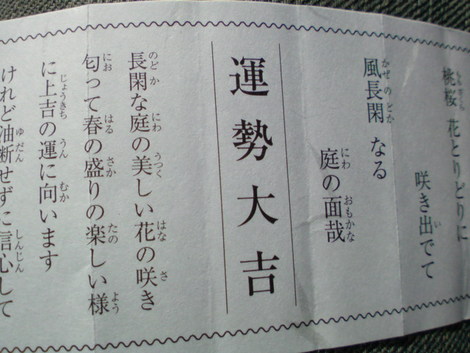 桃桜 花とりどりに
咲き出でて
風長閑 なる
庭の面哉
運勢大吉
長閑な庭の美しい花の咲き
匂って春の盛りの楽しい様
に上吉の運に向います
けれど油断せずに信心して